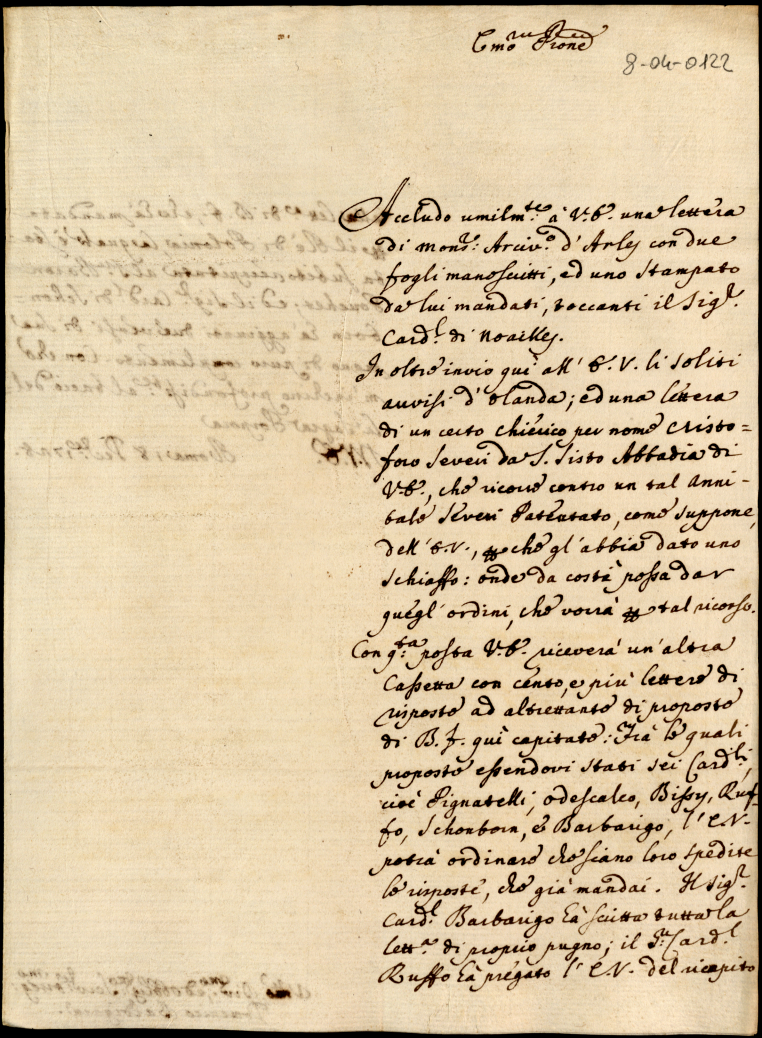 Emo͞ Prone
8-04-0122
Accludo umilm.te à V.E. una lettera
di mons.r Arciv.o d'Arles con due
fogli manoscitti, ed uno stampato
da lui mandati, toccanti il Sig.r
Card.l di Noailles.
In oltre invio qui all'E.V. li soliti
avvisi d'Olanda; ed una lettera
di un certo chierico per nome Cristo=
foro Severi da S. Sisto Abbadia di
V.E., che ricorre contro un tal Anni-
bale Severi Patentato, come suppone,
dell'E.V., che gl'abbia dato uno
schiaffo: onde da costà possa dar
quegl'ordini, che vorrà tal ricorso.
Con q.ta posta V.E. riceverà un'altra
Cassetta con cento, e più lettere di
risposte ad altrettante di proposte
di B.F. qui capitate: Frà le quali
proposte essendovi stati sei Card.li,
cioè Pignatelli, Odescalco, Bissy, Ruf-
fo, Schonborn, e Barbarigo, l'E.V.
potrà ordinare che siano loro spedite
le risposte, che già mandai. Il Sig.r
Card.l Barbarigo hà scitta tutta la
lett.ra di proprio pugno; il S.r Card.l
Ruffo hà pregato l'E.V. del ricapito